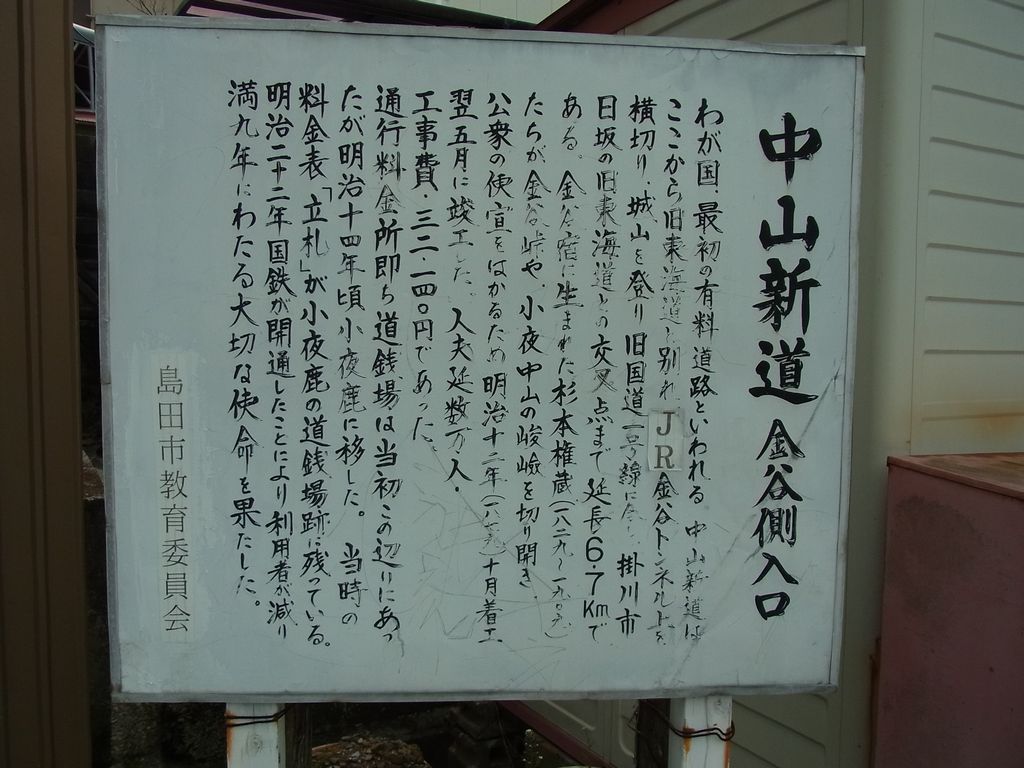 中山新道 金谷側入口
わが国、最初の有料道路といわれる 中山新道は
ここから旧東海道と別れ JR金谷トンネル上を
横切り、城山を登り 旧国道一号線に 掛川市
日坂の旧東海道との交叉点まで延長6.7Kmで
ある。 金谷宿に生まれた杉本権蔵(一八二九〜一九〇九)
たちが金谷峠や、小夜中山の峻嶮を切り開き
公衆の便宜をはかるため明治十二年(一八七九)十月着工
翌五月に竣工した、 人夫延数万人・
工事費・三二・一四〇円であった、
通行料金所即ち道銭場は当初この辺りにあっ
たが明治十四年頃小夜鹿に移した。 当時の
料金表「立札」が小夜鹿の道銭場跡に残っている。
明治二十二年国鉄が開通したことにより利用者が減り
満九年にわたる大切な使命を果たした。
島田市教育委員会